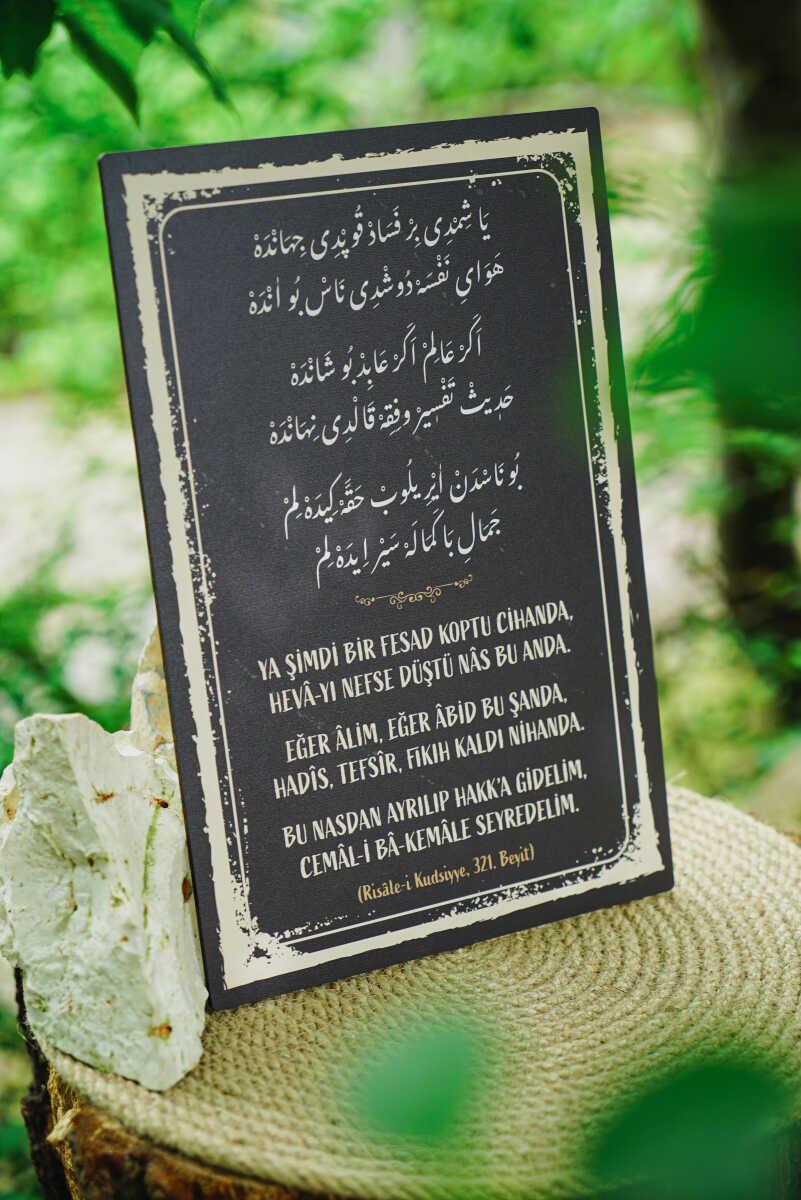 يَا شِمْدِى بِرْ فَسَادْ قُوپْدِى جِهَانْدَهْ
هَوَاىِ نَفْسَهْ دُوشْدِى نَاسْ بُو اٰنْدَهْ
اَكَرْ عَالِمْ اَكَرْ عَابِدْ بُو شَانْدَهْ
حَدِيثْ تَفْسِيرْ وفِقِهْ قَالْدِى نِهَانْدَهْ
بُو نَاسْدَنْ اَيْرِيلُوبْ حَقَّه كِيدَهْ لِمْ
جَمَالِ بَا كَمَالَهْ سَيْر اِيدَهْ لِمْ
YA ŞİMDİ BİR FESAD KOPTU CİHANDA,
HEVÂ-YI NEFSE DÜŞTÜ NÂS BU ANDA.
EĞER ÂLİM, EĞER ÂBİD BU ŞANDA,
HADÎS, TEFSÎR, FIKIH KALDI NİHANDA.
BU NASDAN AYRILIP HAKK'A GİDELİM,
CEMÂL-İ BÂ-KEMÂLE SEYREDELİM.
(Risâle-i Kudsiyye, 321. Beyit)